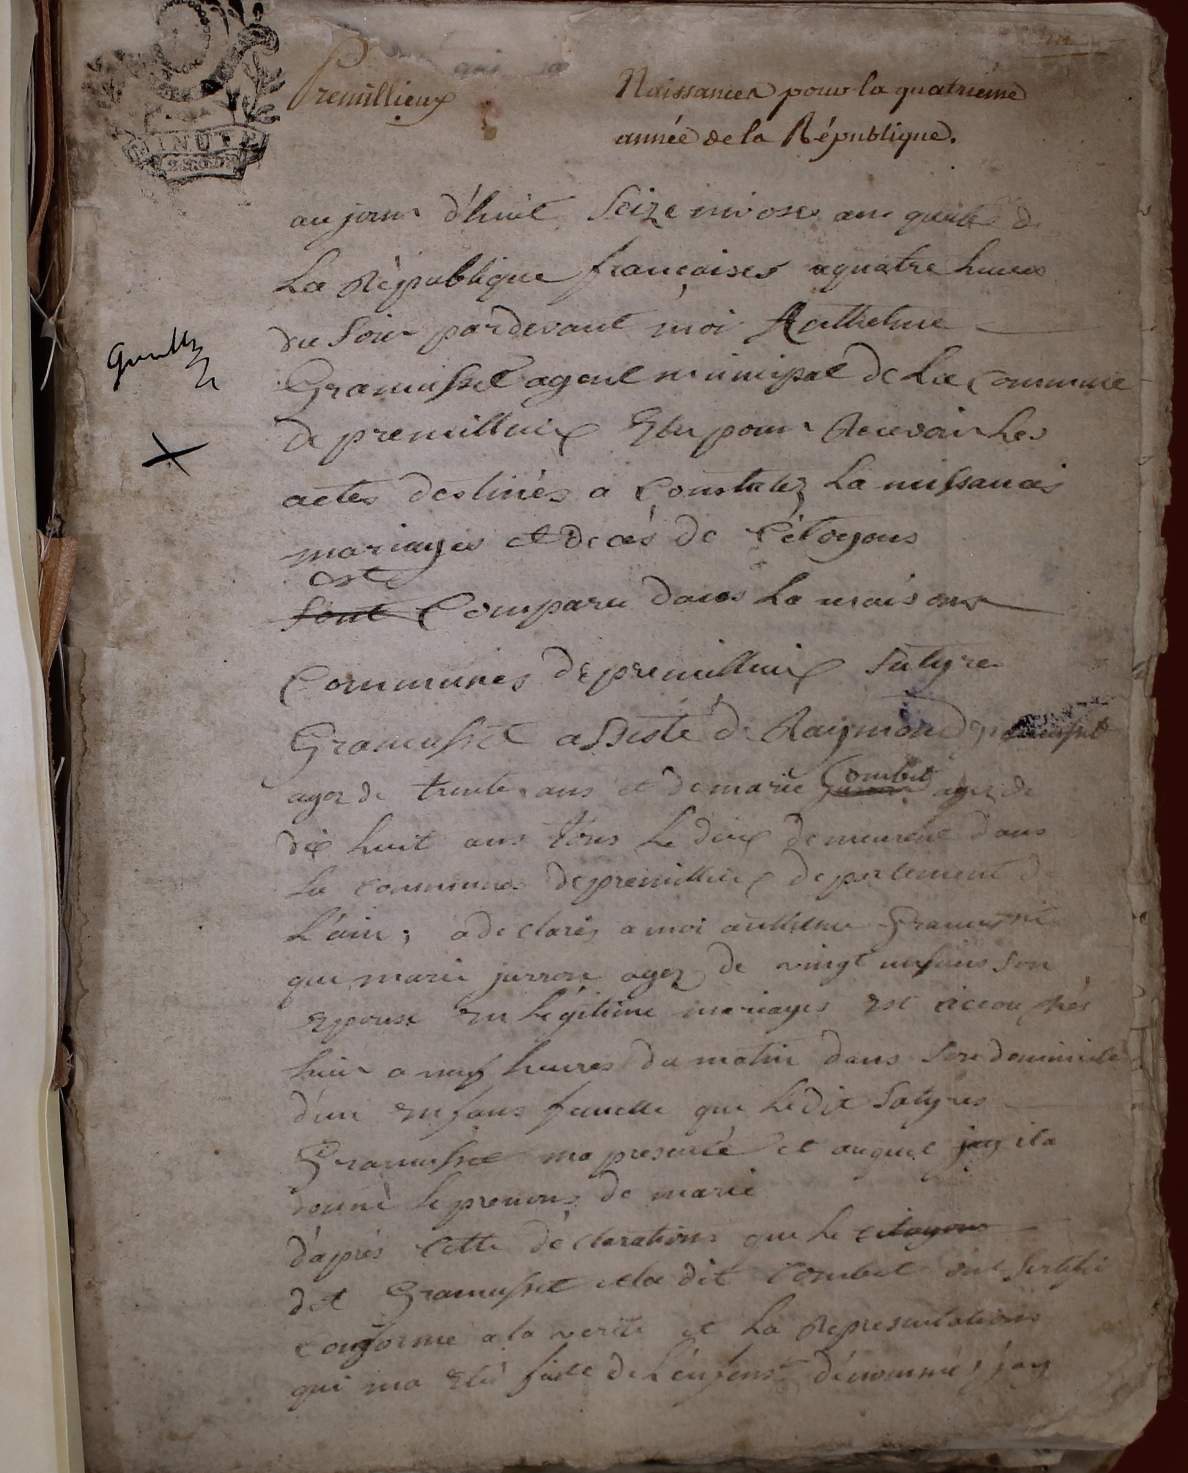 Premillieux
Naissances pour la quatrieme
année de la République.
MINUTE
aujour d'huit Seize nivose an quatre de
La République françaises a quatre heures
du Soir pardevant moi Anthelme
Gramusset agent municipal de La Commune
de premillieux Elu pour Recevoir Les
actes destinés a Constater La naissances
mariages et decés de Citoyens
est
Sont Comparu dans La maisons
Communes de premillieux Satyre
Gramusset assisté de Raymond
agez de trente ans et de marie Combet agez de
dix huit ans tous Le deux demeurent dans
La Communes de premillieux departement de
L'ain, a declarés a moi anthelme Gramusset
que marie jurron agez de vingt ans son
Epouse En Légitime mariages est accouchés
hier a neuf heures du matin dans son domicile
d'un enfans femelle que Ledit Satyres
Gramusset ma presenté et auquel jay ila
donné Le prenons de marie
d'après Cette déclarations que Le citoyens
dit Gramusset et la dit Combet ont Sertifié
conforme a la verité et La Representations
qui ma Eté faite de L'enfens dénommé, jay